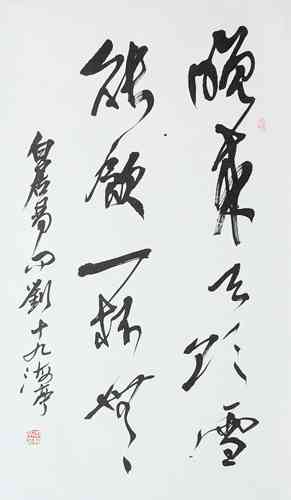 晚來天欲雪
能飲一杯無
白居易問劉十九海